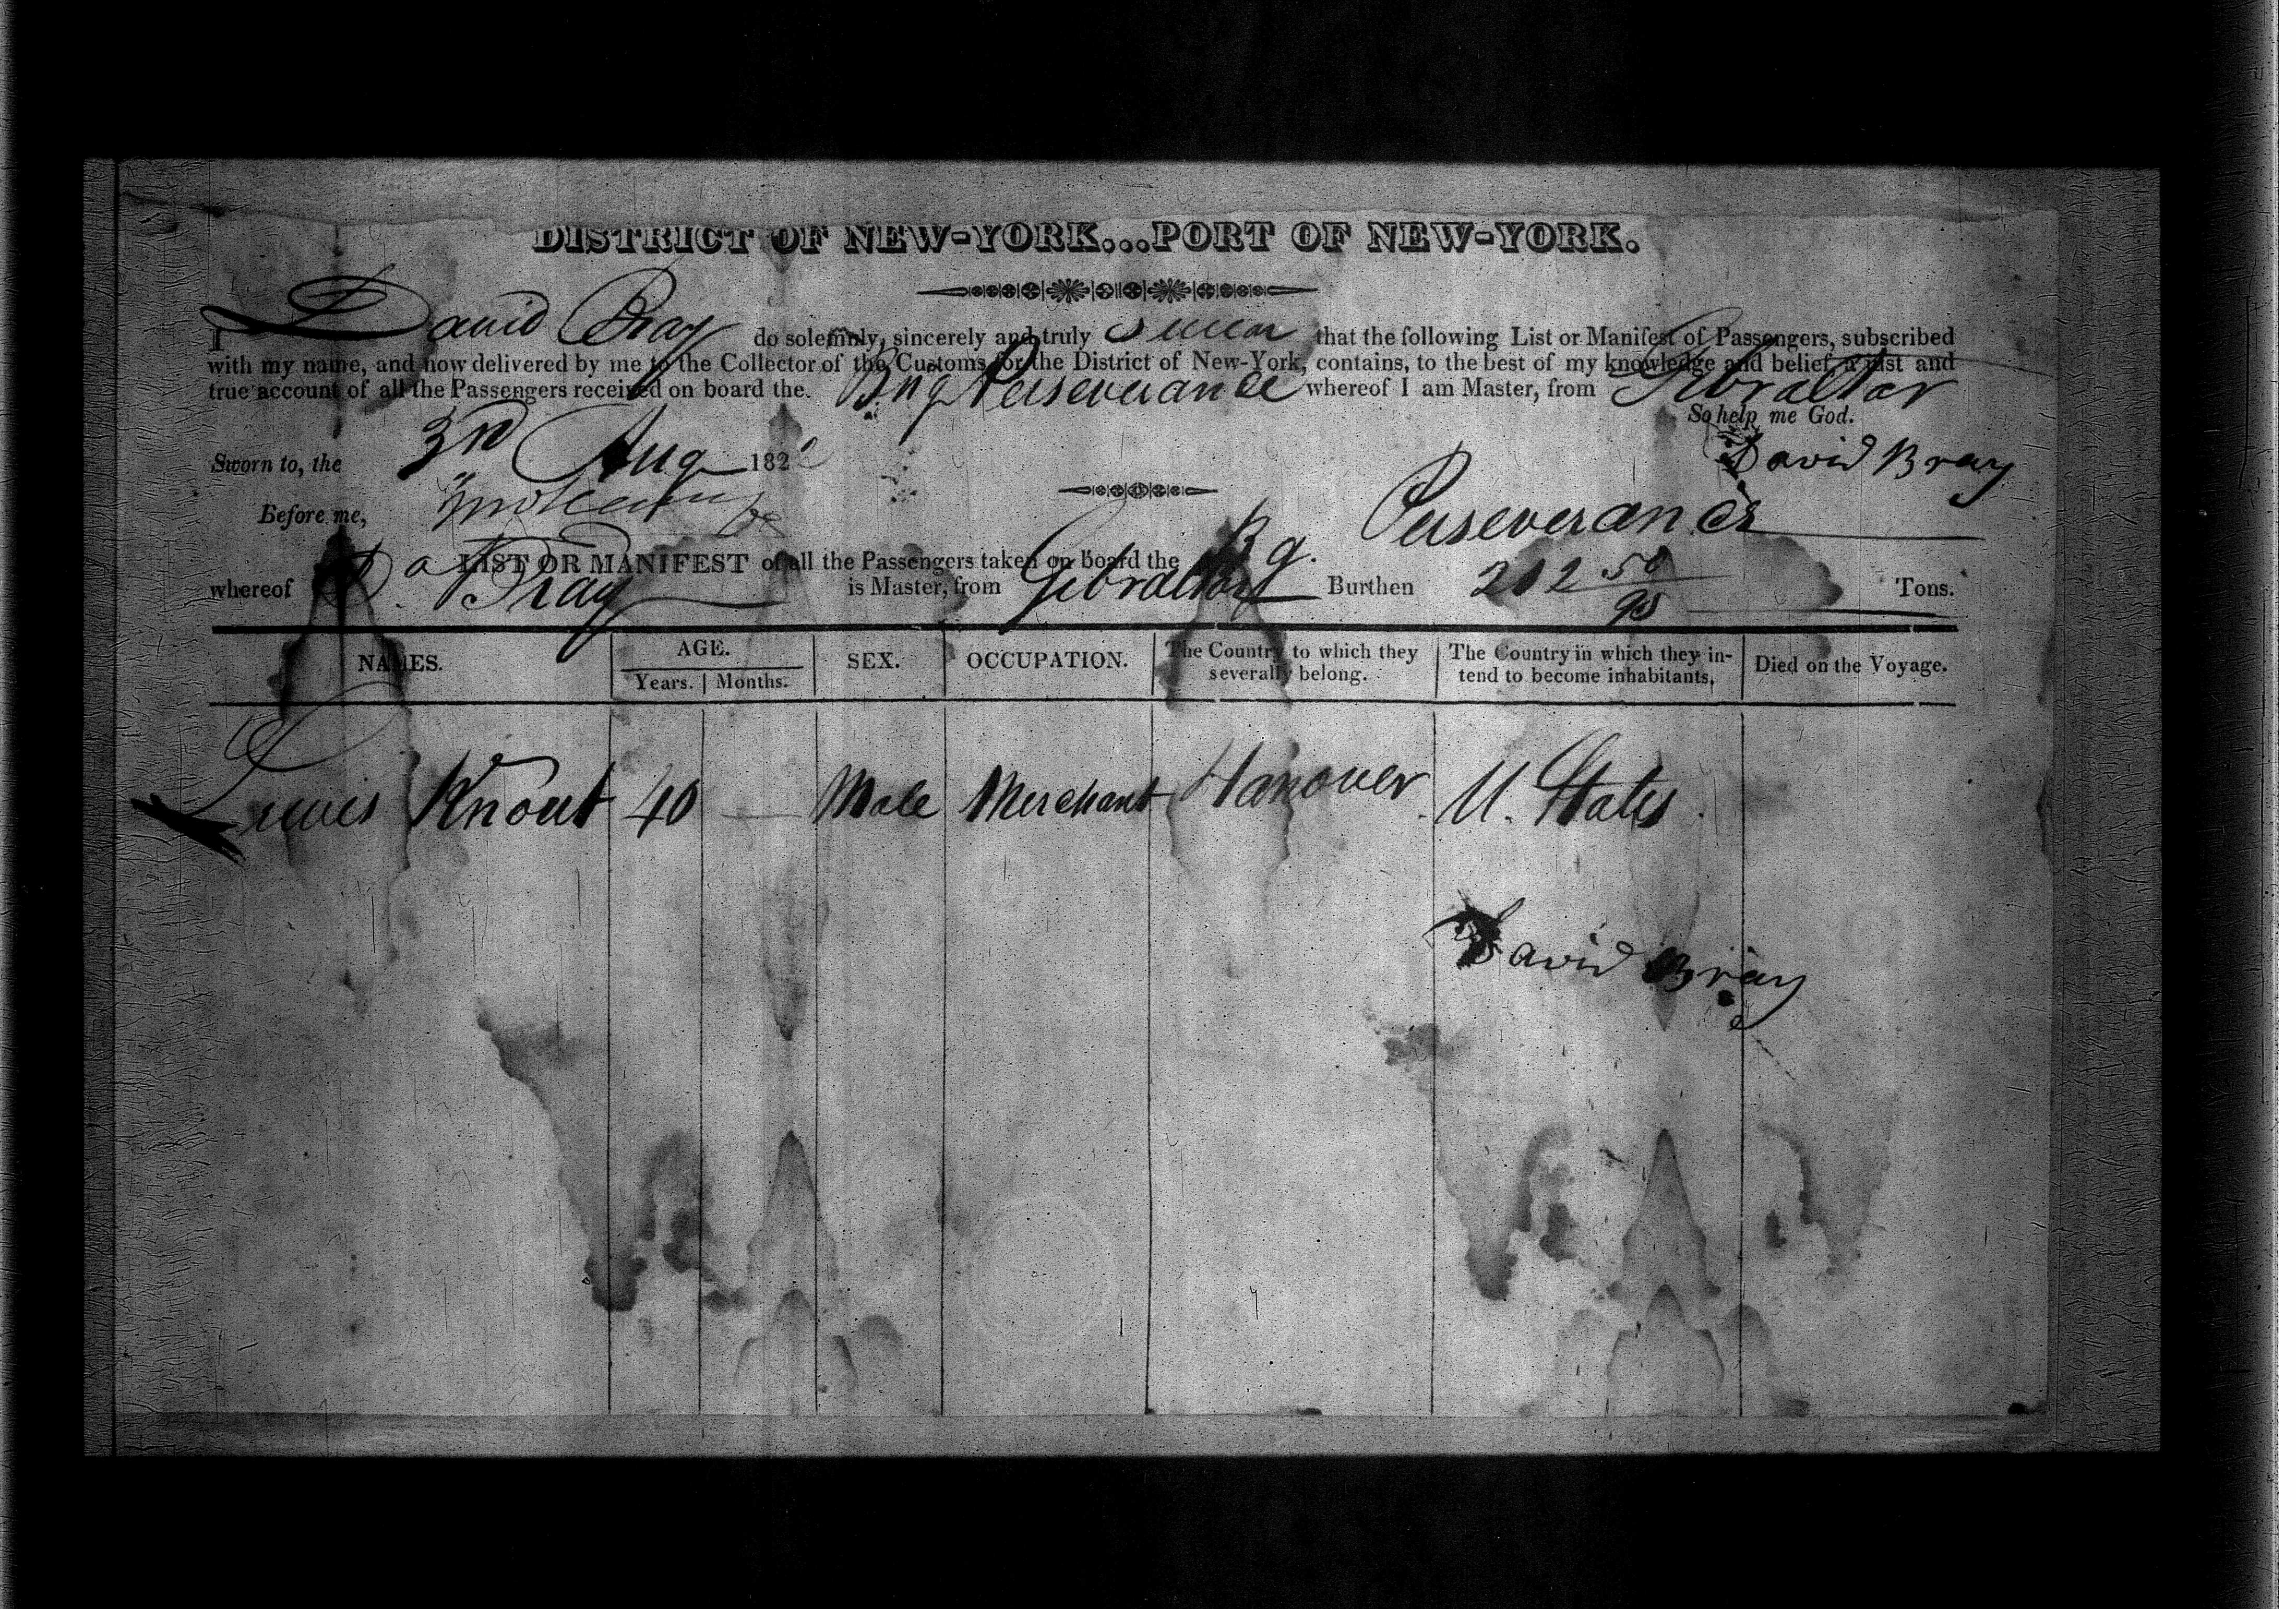 DISTRICT OF NEW-YORK...PORT OF NEW-YORK.
I David Bray do solemnly, sincerely and truly Swear that the following List or Manifest of Passengers, subscribed
with my name, and now delivered by me to the Collector of the Customs for the District of New-York, contains, to the best of my knowledge and belief, a just and
true account of all the Passengers received on board the. Brig Perseverance whereof I am Master, from Gibraltar
So help me God.
Sworn to, the 3rd Aug 182
David Bray
Before me,
LIST OR MANIFEST of all the Passengers taken on board the Bg. Perseverance
whereof Da Bray is Master, from Gibraltar Burthen 212 50/95 Tons.
NAMES. AGE. SEX. OCCUPATION. The Country to which they severally belong. The Country in which they intend to become inhabitants, Died on the Voyage.
Years. Months.
Lewis Knout 40 — Male Merchant Hanover U. States
David Bray